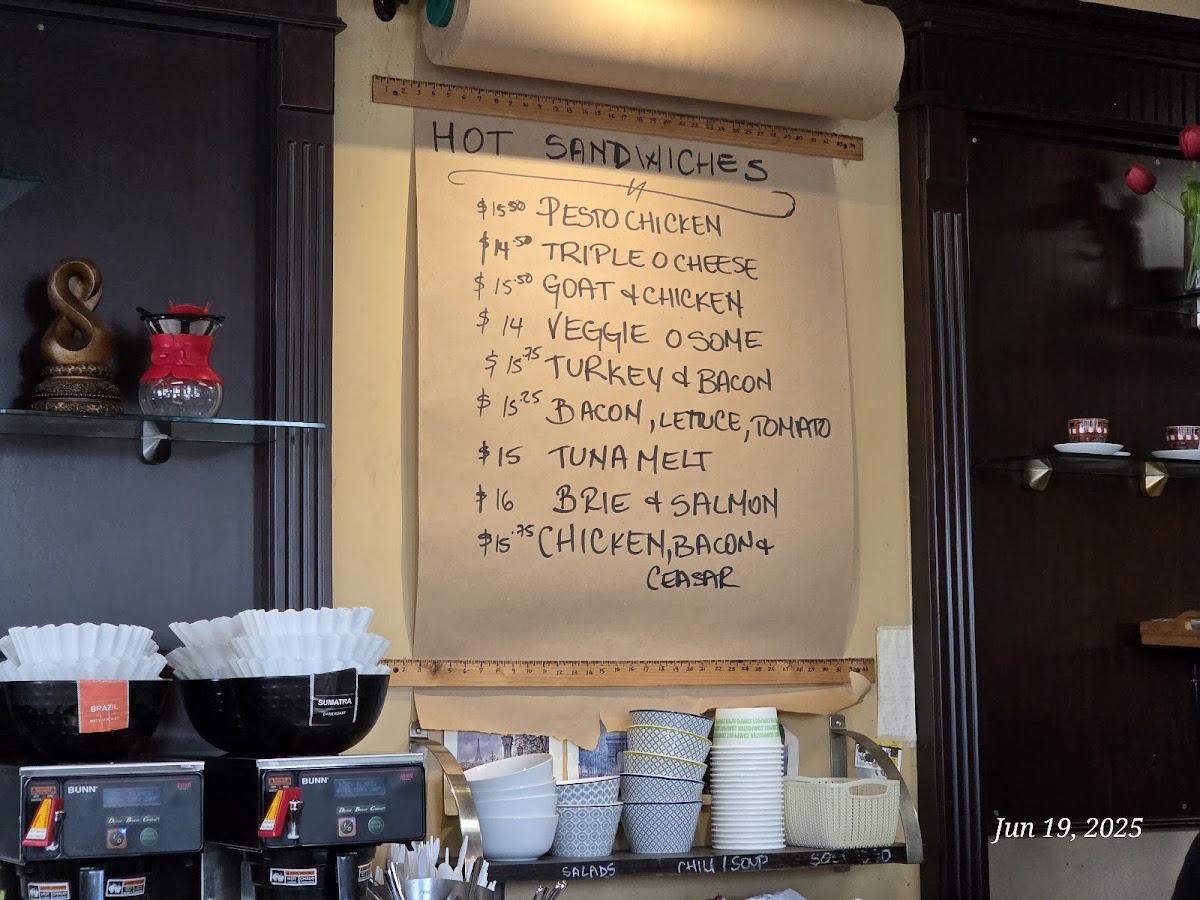 HOT SANDWICHES
$15.50 PESTO CHICKEN
$14.50 TRIPLE O CHEESE
$15.50 GOAT & CHICKEN
$14 VEGGIE O SOME
$15.75 TURKEY & BACON
$15.25 BACON, LETTUCE, TOMATO
$15 TUNA MELT
$16 BRIE & SALMON
$15.75 CHICKEN, BACON &
CEASAR
BRAZIL
SUMATRA
DARK ROAST
BUNN
BUNN
SALADS
CHILI / SOUP
Jun 19, 2025